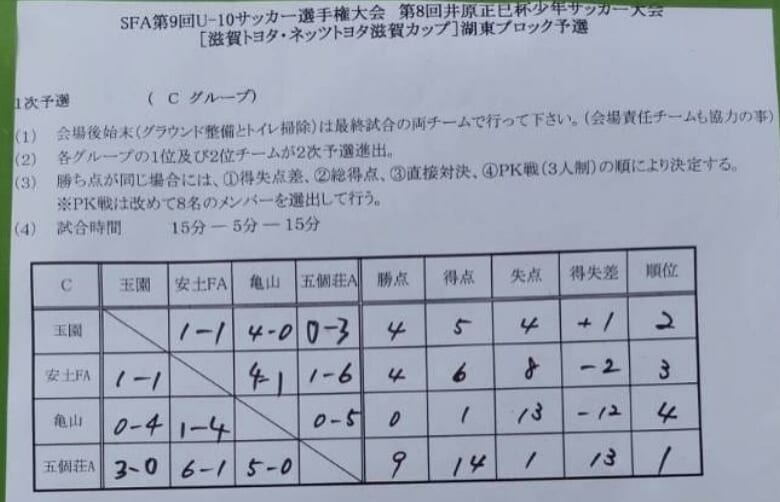 SFA第9回U-10サッカー選手権大会 第8回井原正巳杯少年サッカー大会
[滋賀トヨタ・ネッツトヨタ滋賀カップ]湖東ブロック予選
1次予選 ( C グループ)
(1) 会場後始末(グラウンド整備とトイレ掃除)は最終試合の両チームで行って下さい。(会場責任チームも協力の事)
(2) 各グループの1位及び2位チームが2次予選進出。
(3) 勝ち点が同じ場合には、①得失点差、②総得点、③直接対決、④PK戦(3人制)の順により決定する。
※PK戦は改めて8名のメンバーを選出して行う。
(4) 試合時間 15分 ― 5分 ― 15分
C 玉園 安土FA 亀山 五個荘A 勝点 得点 失点 得失差 順位
玉園 1-1 4-0 0-3 4 5 4 +1 2
安土FA 1-1 4-1 1-6 4 6 8 -2 3
亀山 0-4 1-4 0-5 0 1 13 -12 4
五個荘A 3-0 6-1 5-0 9 14 1 13 1